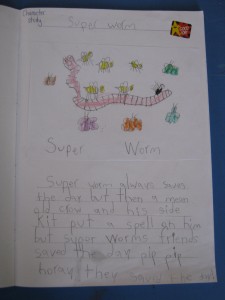 Character
study
Super worm
Super Worm
Super worm always saves
the day but then a mean
old crow and his side
kit put a spell on him
but super worms friends
saved the day pip pip
horay they saved the